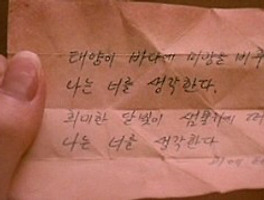 태양이 바다에 미광을 비추
나는 너를 생각한다.
희미한 달빛이 샘물가에
나는 너를 생각한다